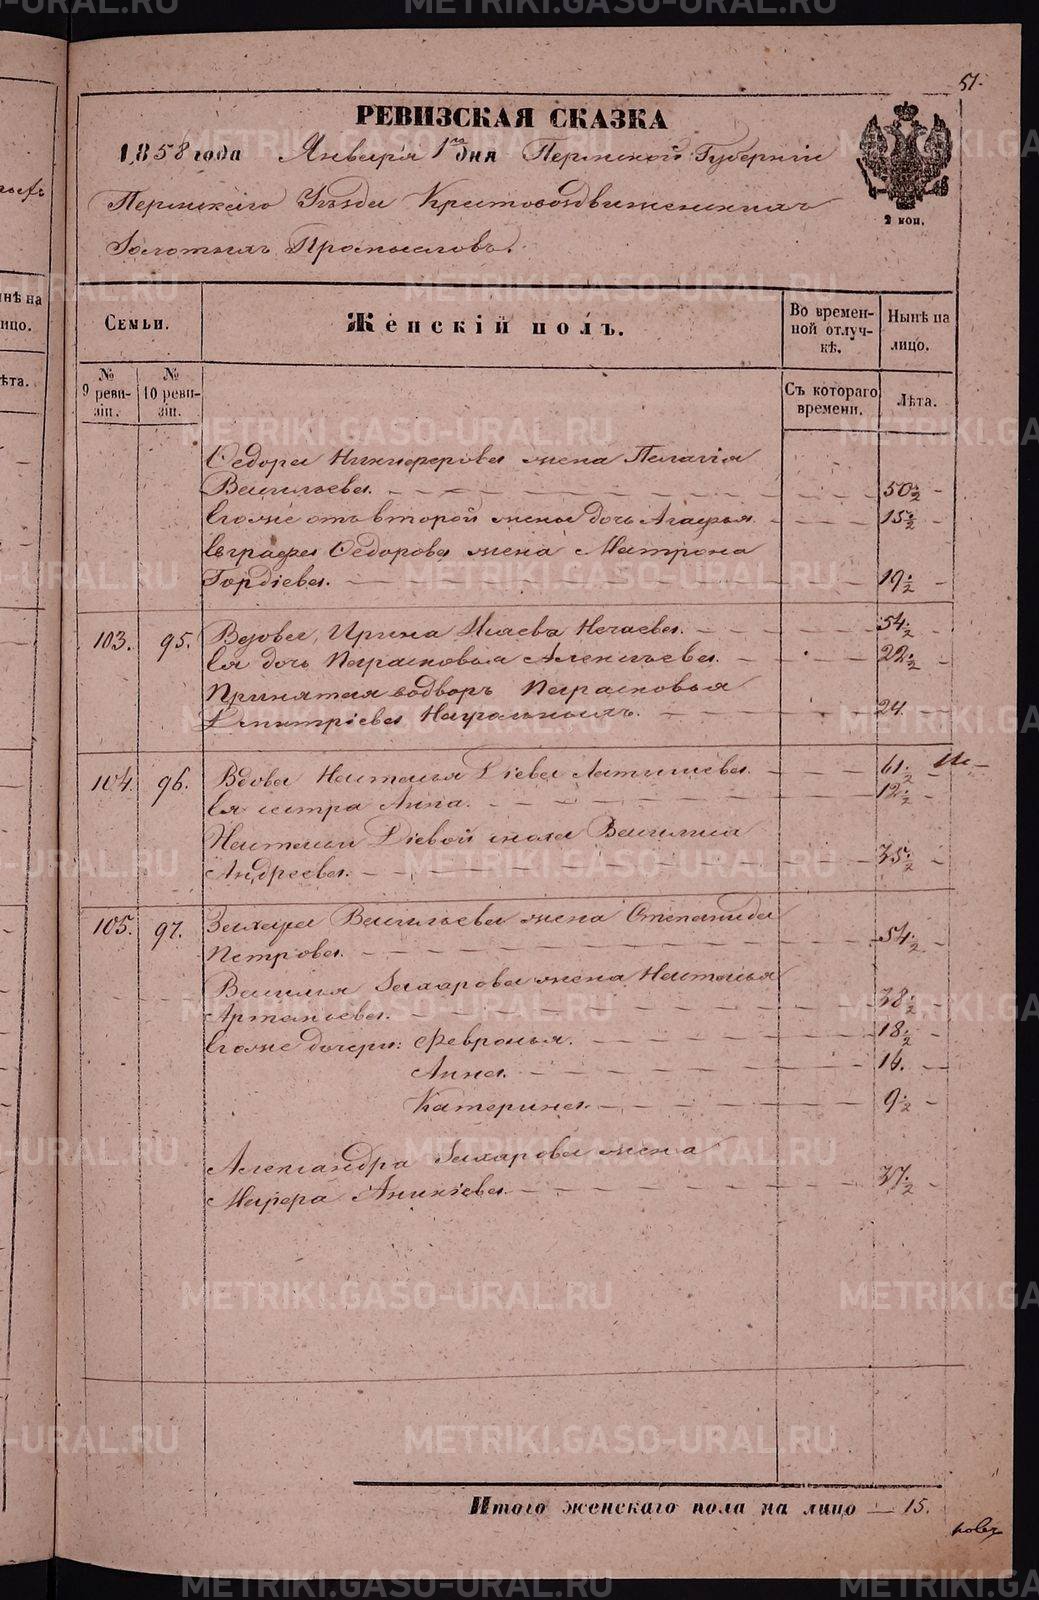 51.
РЕВИЗСКАЯ СКАЗКА
1858 года Января 1го дня Пермской Губернiи
Пермскаго Уѣзда Крестовоздвиженскихъ
Золотыхъ Промысловъ.
2 коп.
Семьи.
Женскiй полъ.
Во времен-
ной отлуч-
кѣ.
Нынѣ на
лицо.
№
9 реви-
зiи.
№
10 реви-
зiи.
Съ котораго
времени.
Лѣта.
Федора Никиферова жена Палагiя
Васильева. 50½
Егоже отъ второй жены дочь Агафья 15½
Евграфа Федорова жена Матрона
Гордiева. 19½
103. 95. Вдова, Ирина Исаева Нечаева. 54½
Ея дочь Парасковья Алексѣева. 22½
Принятая водворъ Парасковья
Дмитрiева 24.
104. 96. Вдова Наталья Дiева Латышева. 61½
Ея сестра Анна. 12½
Натальи Дiевой сноха Василиса
Андреева. 35½
105. 97. Захара Васильева жена Степанида
Петрова. 54½
Василья Захарова жена Наталья
Артемьева. 38½
Егоже дочери: Февронья. 18½
Анна. 16.
Катерина. 9½
Александра Захарова жена
Марфа Аникiева 37½
Итого женскаго пола на лицо — 15.
METRIKI.GASO-URAL.RU